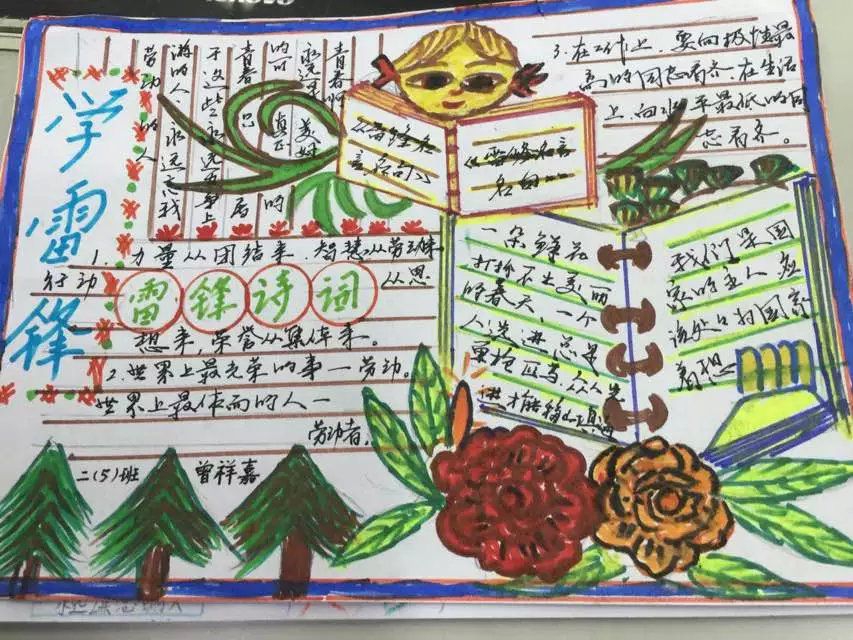 学雷锋
青春啊
永远是美好
的可 真正
青春 只 的
于这些永远力争上
游的人永远忘我
劳动的人
雷锋名
言名句
《雷锋名言
名句
3.在工作上,要向极性最
高的同志看齐,在生活
上,向水平最低的同
志看齐。
1.力量从团结来,智慧从劳动来
行动 雷锋诗词 从思
想来,荣誉从集体来。
2.世界上最光荣的事一劳动。
世界上最体面的人一
劳动者。
二(5)班 曾祥嘉
一朵鲜花
打扮不出美丽
的春天,一个
人先进总是
单枪匹马,众人先
进才能移山填海
我们是国
家的主人应
该处处为国家
着想